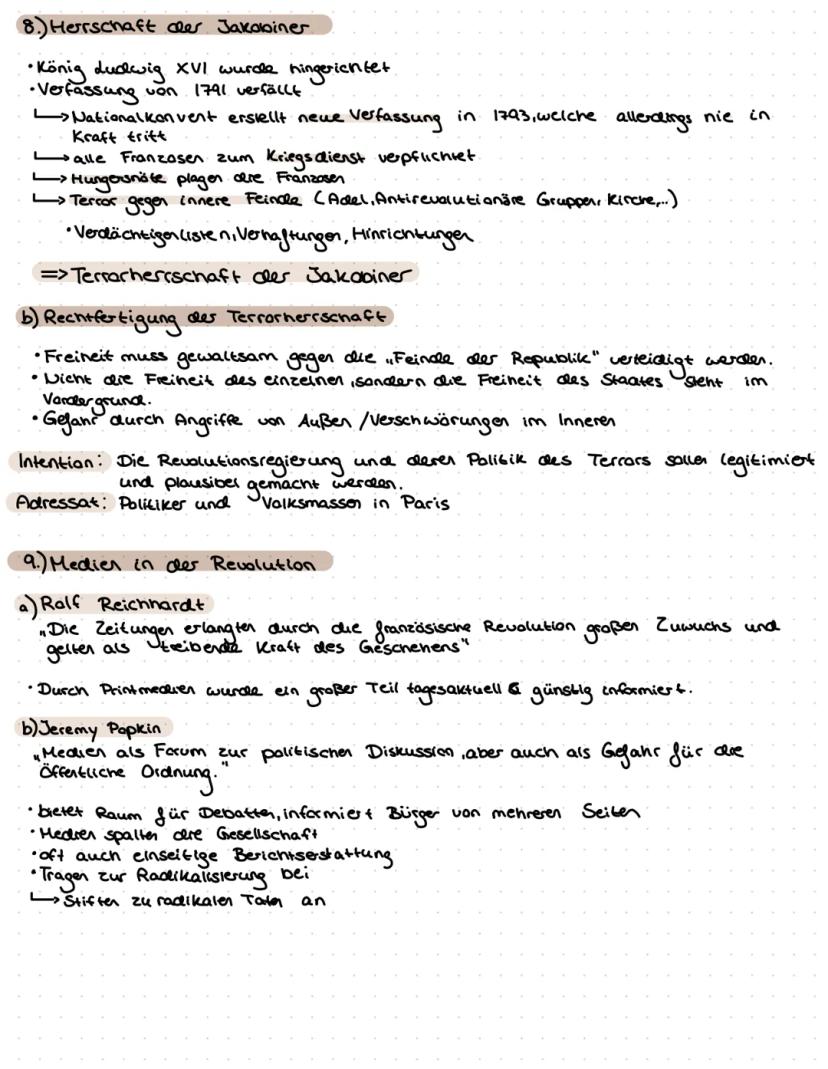 8.) Herrschaft der Jakobiner
• König Ludwig XVI wurde hingerichtet
• Verfassung von 1791 verfällt
↳ Nationalkonvent erstellt neue Verfassung in 1793, welche allerdings nie in
Kraft tritt
↳ alle Franzosen zum Kriegsdienst verpflichtet
↳ Hungersnöte plagen die Franzosen
↳ Terror gegen innere Feinde (Adel, Antirevolutionäre Gruppen, Kirche,...)
• Verdächtigenlisten, Verhaftungen, Hinrichtungen
=> Terrorherrschaft der Jakobiner
b) Rechtfertigung der Terrorherrschaft
• Freiheit muss gewaltsam gegen die „Feinde der Republik" verteidigt werden.
• Nicht die Freiheit des einzelnen, sondern die Freiheit des Staates steht im
Vordergrund.
• Gefahr durch Angriffe von Außen / Verschwörungen im Inneren
Intention: Die Revolutionsregierung und deren Politik des Terrors sollen legitimiert
und plausibel gemacht werden.
Adressat: Politiker und Volksmassen in Paris
9.) Medien in der Revolution
a) Rolf Reichhardt
„Die Zeitungen erlangten durch die französische Revolution großen Zuwuchs und
gelten als treibende Kraft des Geschehens"
• Durch Printmedien wurde ein großer Teil tagesaktuell & günstig informiert.
b) Jeremy Popkin
„Medien als Forum zur politischen Diskussion, aber auch als Gefahr für die
Öffentliche Ordnung."
• bietet Raum für Debatten, informiert Bürger von mehreren Seiten
• Medien spalten die Gesellschaft
• oft auch einseitige Berichtserstattung
• Tragen zur Radikalisierung bei
↳ Stiften zu radikalen Taten an